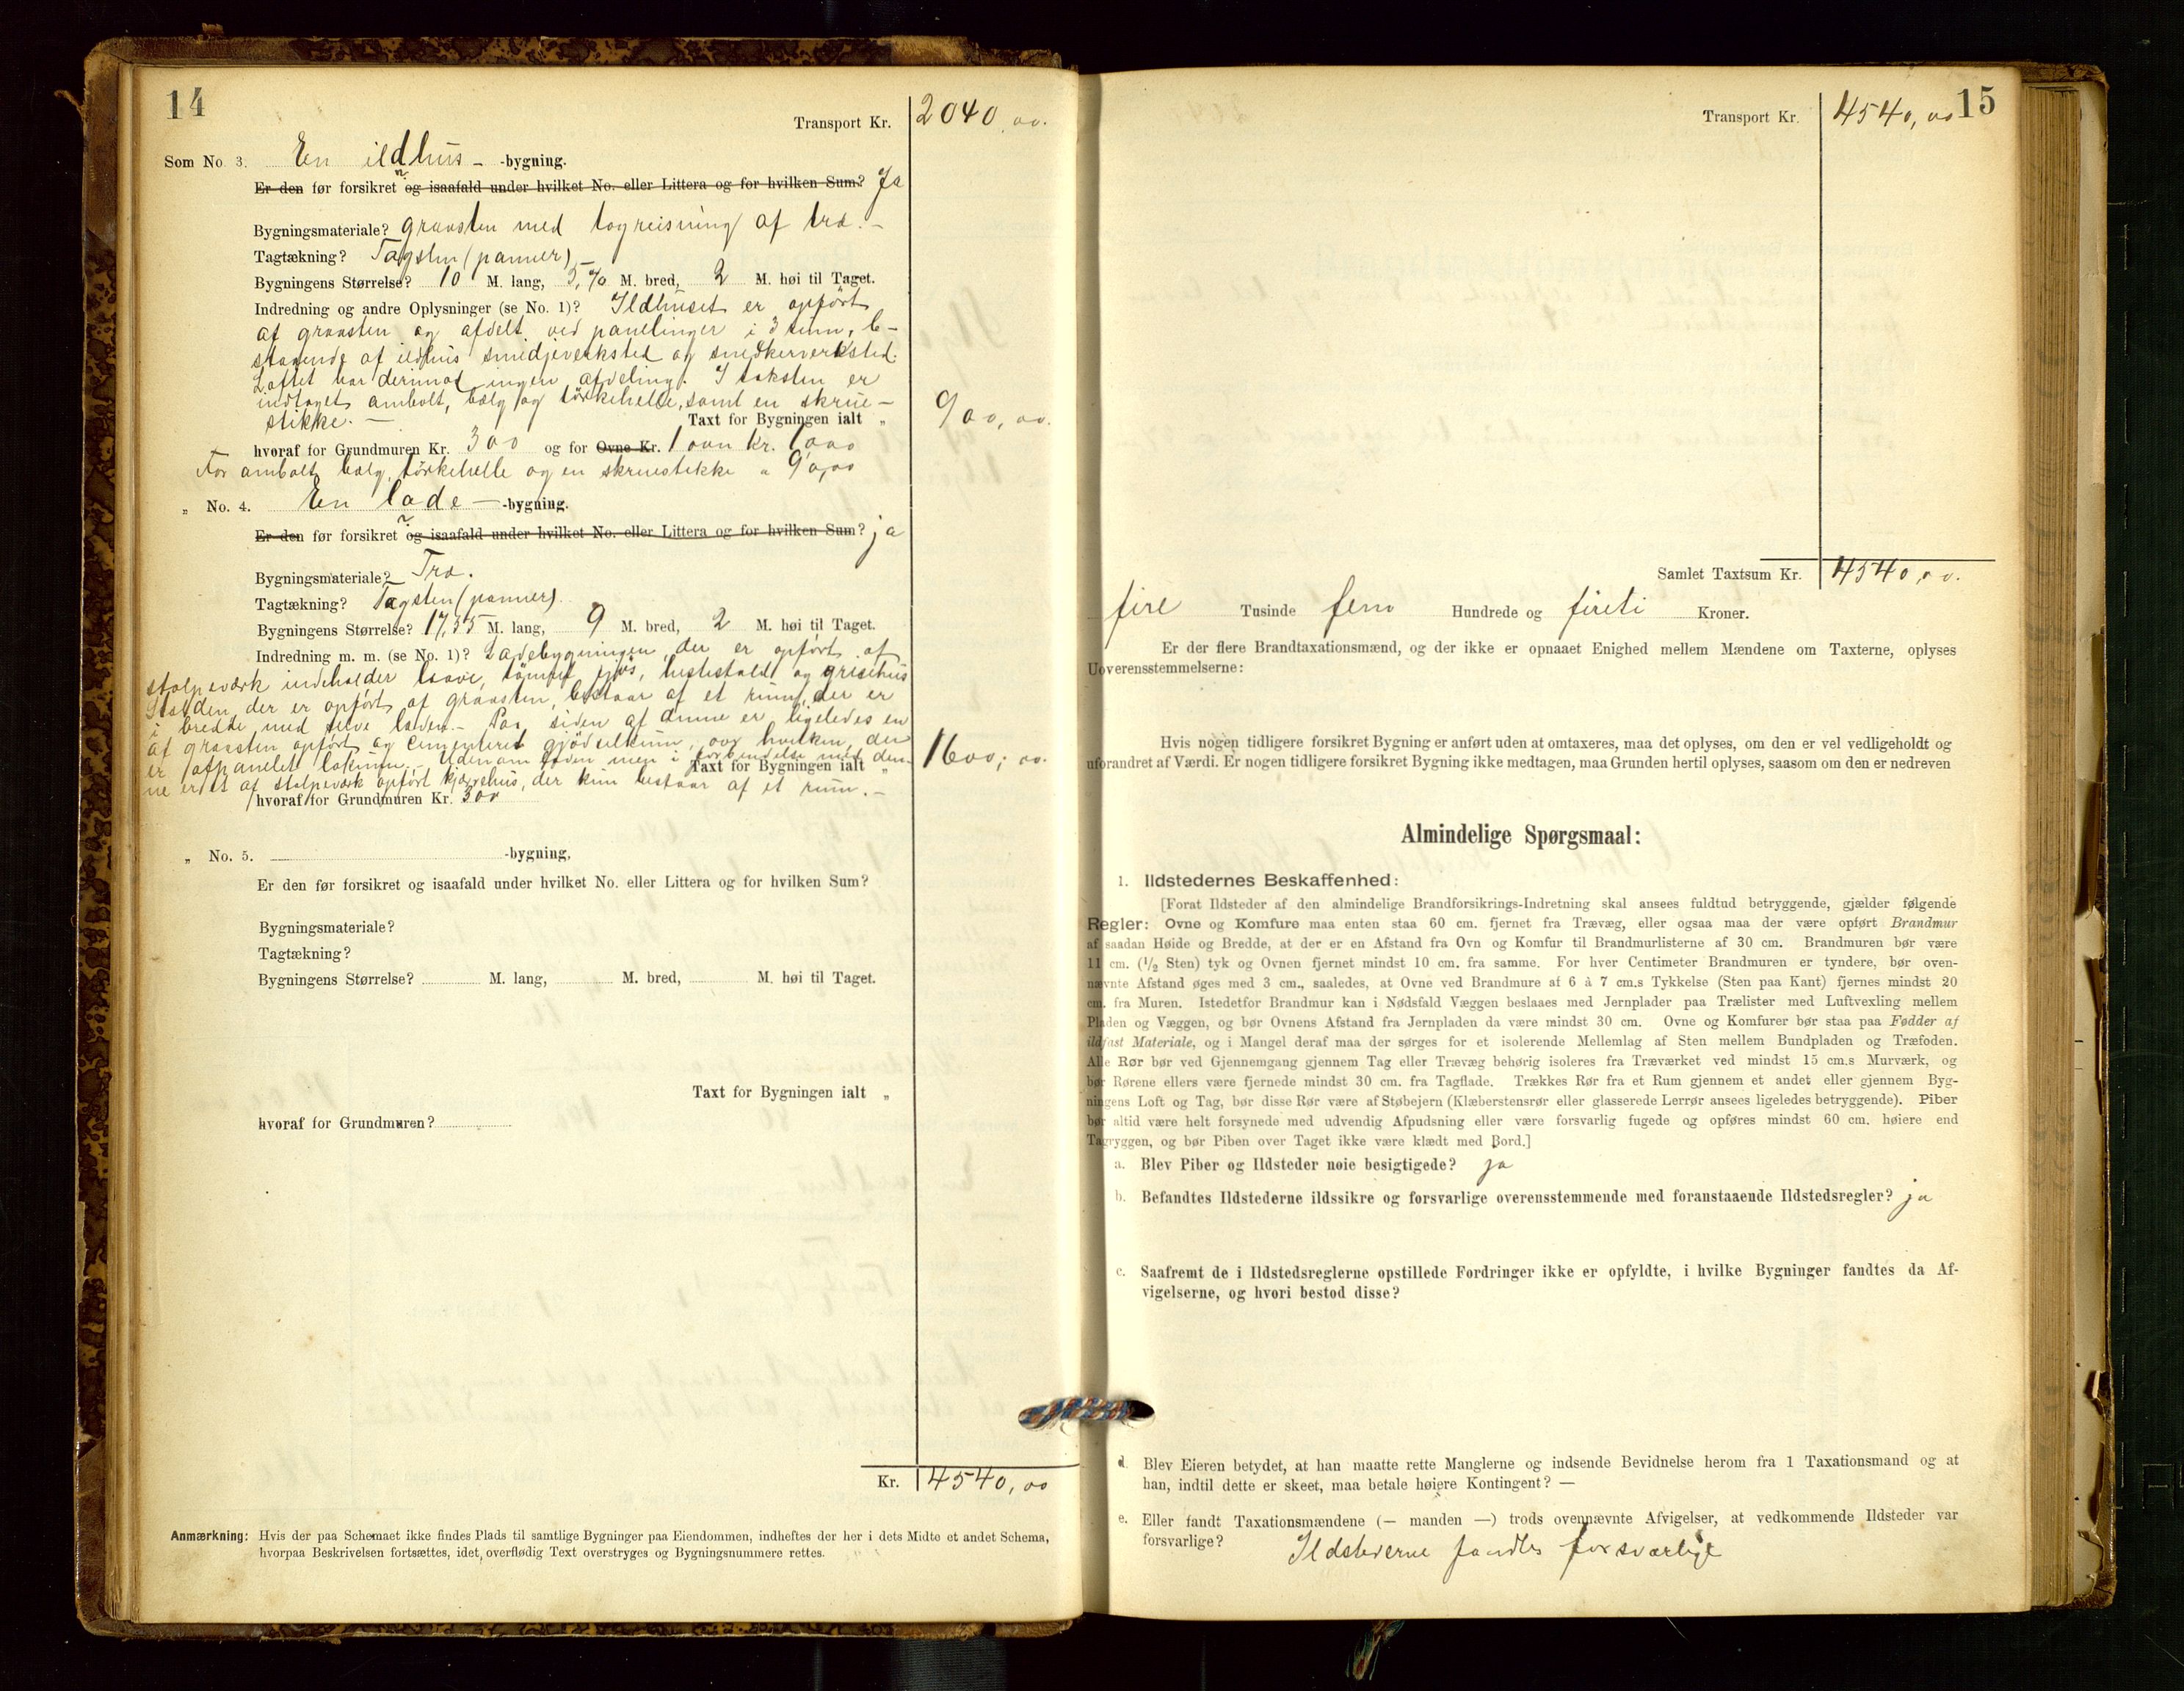 14
Transport Kr. 2040,00.
Som No. 3. En ildhus - -bygning.
Er den før forsikret og isaafald under hvilket No. eller Littera og for hvilken Sum? Ja
Bygningsmateriale? graasten med tagreisning af træ. -
Tagtækning? Tagsten (panner) -
Bygningens Størrelse? 10 M. lang, 5,70 M. bred, 2 M. høi til Taget.
Indredning og andre Oplysninger (se No. 1)? Ildhuset er opført
af graasten og afdelt ved panelinger i 3 rum, be-
staaende af ildhus smidjeverksted og snedkerverksted.
Loftet har derimod ingen afdeling. I taksten er
indtaget ambolt, bælg og tørkehelle, samt en skrue-
stikke. -
Taxt for Bygningen ialt „ 900,00.
hvoraf for Grundmuren Kr. 300 og for Ovne Kr. 1 ovn Kr. 10,00
For ambolt, bælg, tørkehelle og en skruestikke „ 90,00
„ No. 4. En lade - -bygning.
Er den før forsikret og isaafald under hvilket No. eller Littera og for hvilken Sum? ja
Bygningsmateriale? Træ.
Tagtækning? Tagsten (panner)
Bygningens Størrelse? 17,55 M. lang, 9 M. bred, 2 M. høi til Taget.
Indredning m. m. (se No. 1)? Ladebygningen, der er opført af
stolpeværk indeholder laave, tømret fjøs, hestestald og grisehus
der er opført af graasten, bestaar af et rum, der er
i bredde med selve laden. - Paa siden af denne er ligeledes en
af graasten opført og cementeret gjødselkum, over hvilken der
er afpanelet - Udenom laden men i forbindelse med den-
ne er et af stolpeværk opført kjærrehus, der kun bestaar af et rum. -
Taxt for Bygningen ialt „ 1600,00.
hvoraf for Grundmuren Kr. 300
„ No. 5. -bygning,
Er den før forsikret og isaafald under hvilket No. eller Littera og for hvilken Sum?
Bygningsmateriale?
Tagtækning?
Bygningens Størrelse? M. lang, M. bred, M. høi til Taget.
Taxt for Bygningen ialt „
hvoraf for Grundmuren?
Kr. 4540,00
Anmærkning: Hvis der paa Schemaet ikke findes Plads til samtlige Bygninger paa Eiendommen, indheftes der her i dets Midte et andet Schema,
hvorpaa Beskrivelsen fortsættes, idet overflødig Text overstryges og Bygningsnummere rettes.
15
Transport Kr. 4540,00
Samlet Taxtsum Kr. 4540,00.
fire Tusinde fem Hundrede og fireti Kroner.
Er der flere Brandtaxationsmænd, og der ikke er opnaaet Enighed mellem Mændene om Taxterne, oplyses
Uoverensstemmelserne:
Hvis nogen tidligere forsikret Bygning er anført uden at omtaxeres, maa det oplyses, om den er vel vedligeholdt og
uforandret af Værdi. Er nogen tidligere forsikret Bygning ikke medtagen, maa Grunden hertil oplyses, saasom om den er nedreven
Almindelige Spørgsmaal:
1. Ildstedernes Beskaffenhed:
[Forat Ildsteder af den almindelige Brandforsikrings-Indretning skal ansees fuldtud betryggende, gjælder følgende
Regler: Ovne og Komfure maa enten staa 60 cm. fjernet fra Trævæg, eller ogsaa maa der være opført Brandmur
af saadan Høide og Bredde, at der er en Afstand fra Ovn og Komfur til Brandmurlisterne af 30 cm. Brandmuren bør være
11 cm. (1/2 Sten) tyk og Ovnen fjernet mindst 10 cm. fra samme. For hver Centimeter Brandmuren er tyndere, bør oven-
nævnte Afstand øges med 3 cm., saaledes, at Ovne ved Brandmure af 6 à 7 cm.s Tykkelse (Sten paa Kant) fjernes mindst 20
cm. fra Muren. Istedetfor Brandmur kan i Nødsfald Væggen beslaaes med Jernplader paa Trælister med Luftvexling mellem
Pladen og Væggen, og bør Ovnens Afstand fra Jernpladen da være mindst 30 cm. Ovne og Komfurer bør staa paa Fødder af
ildfast Materiale, og i Mangel deraf maa der sørges for et isolerende Mellemlag af Sten mellem Bundpladen og Træfoden.
Alle Rør bør ved Gjennemgang gjennem Tag eller Trævæg behørig isoleres fra Træværket ved mindst 15 cm.s Murværk, og
bør Rørene ellers være fjernede mindst 30 cm. fra Tagflade. Trækkes Rør fra et Rum gjennem et andet eller gjennem Byg-
ningens Loft og Tag, bør disse Rør være af Støbejern (Klæberstensrør eller glasserede Lerrør ansees ligeledes betryggende). Piber
bør altid være helt forsynede med udvendig Afpudsning eller være forsvarlig fugede og opføres mindst 60 cm. høiere end
Tagryggen, og bør Piben over Taget ikke være klædt med Bord.]
a. Blev Piber og Ildsteder nøie besigtigede? ja
b. Befandtes Ildstederne ildssikre og forsvarlige overensstemmende med foranstaaende Ildstedsregler? ja
c. Saafremt de i Ildstedsreglerne opstillede Fordringer ikke er opfyldte, i hvilke Bygninger fandtes da Af-
vigelserne, og hvori bestod disse?
d. Blev Eieren betydet, at han maatte rette Manglerne og indsende Bevidnelse herom fra 1 Taxationsmand og at
han, indtil dette er skeet, maa betale høiere Kontingent? —
e. Eller fandt Taxationsmændene (— manden —) trods ovennævnte Afvigelser, at vedkommende Ildsteder var
forsvarlige? Ildstederne fandtes forsvarlige